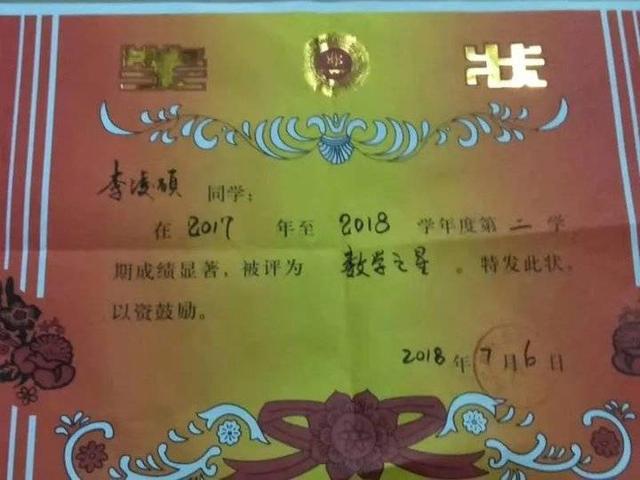 奖状
李凌硕 同学:
在 2017 年至 2018 学年度第 二 学
期成绩显著,被评为 数学之星 。特发此状,
以资鼓励。
2018 年 7 月 6 日